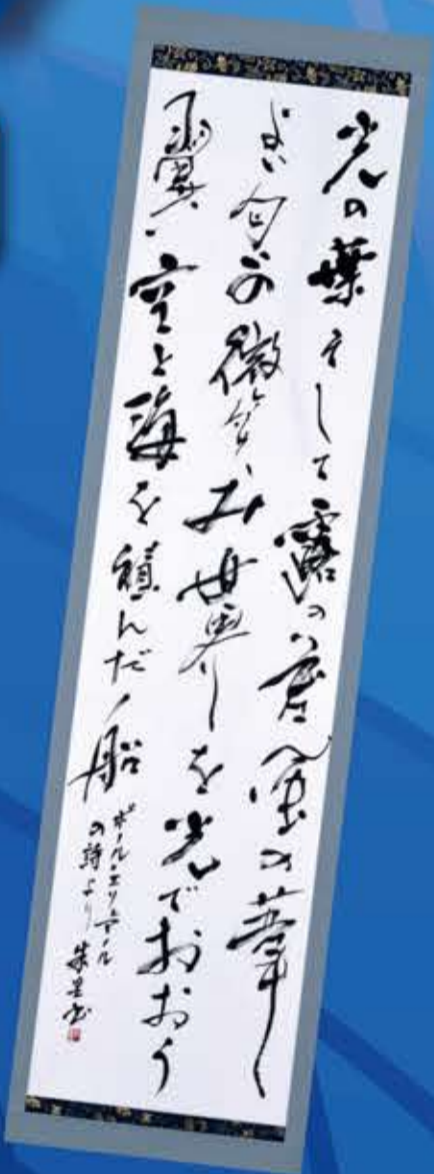 光の葉そして露の苔風の葦
よい匂の微笑、世界を光でおおう
翼、空と海を積んだ船
ポール・エリュアール
の詩より